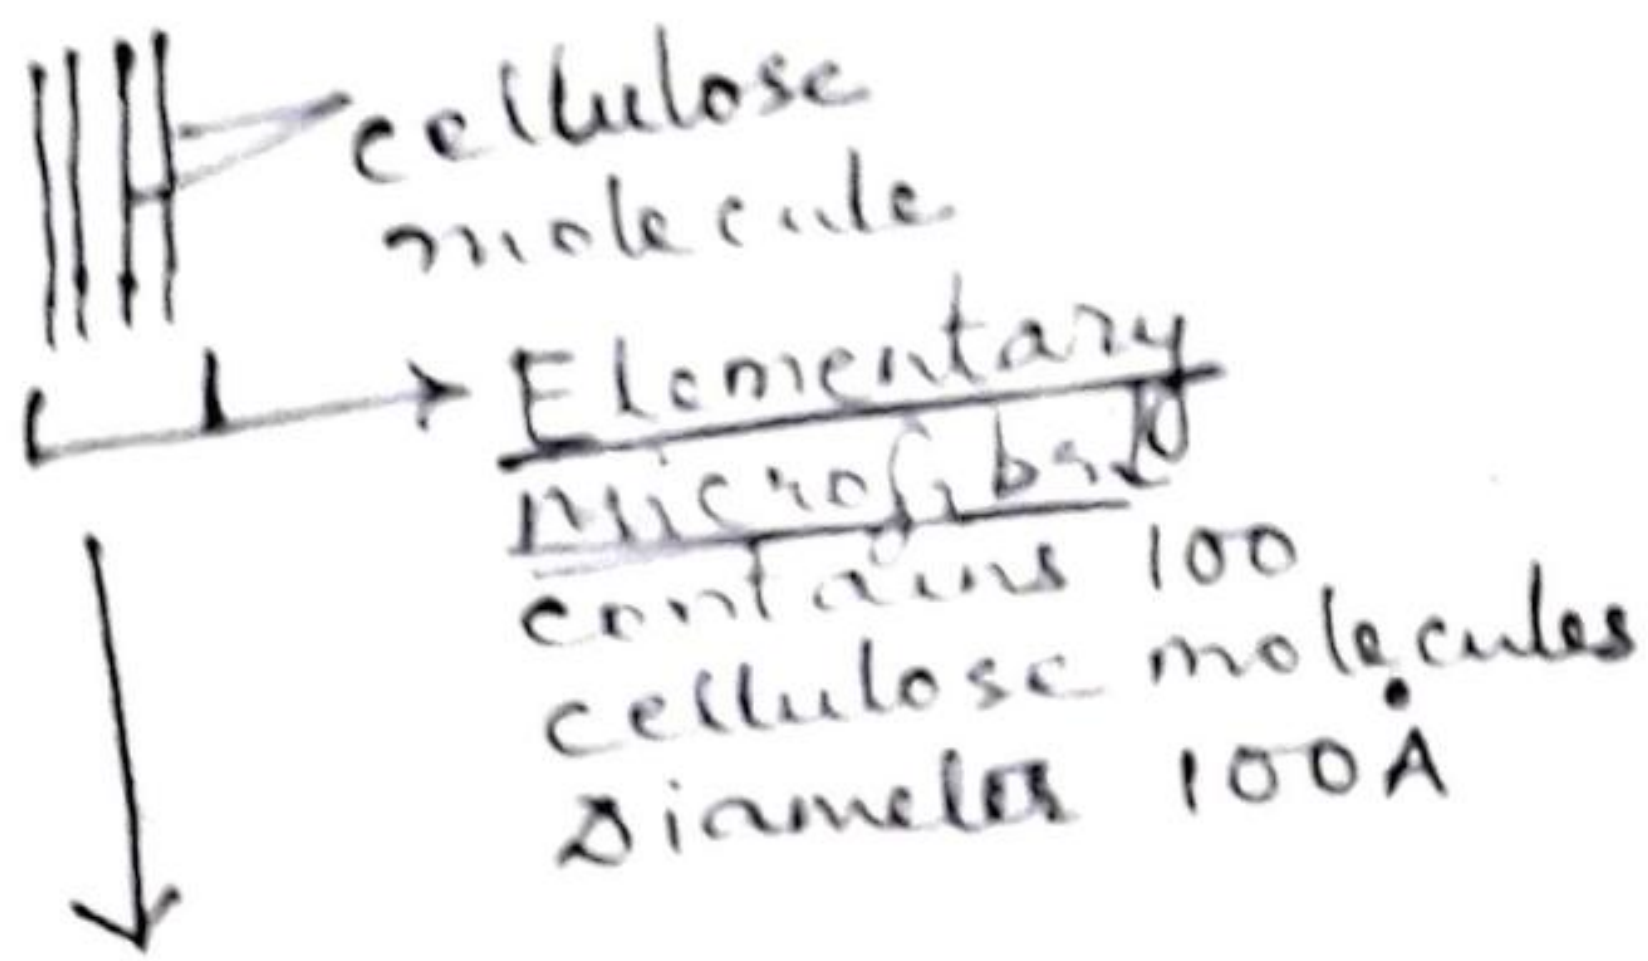 cellulose
molecule
Elementary
microfibril
contains 100
cellulose molecules
Diameter 100Å